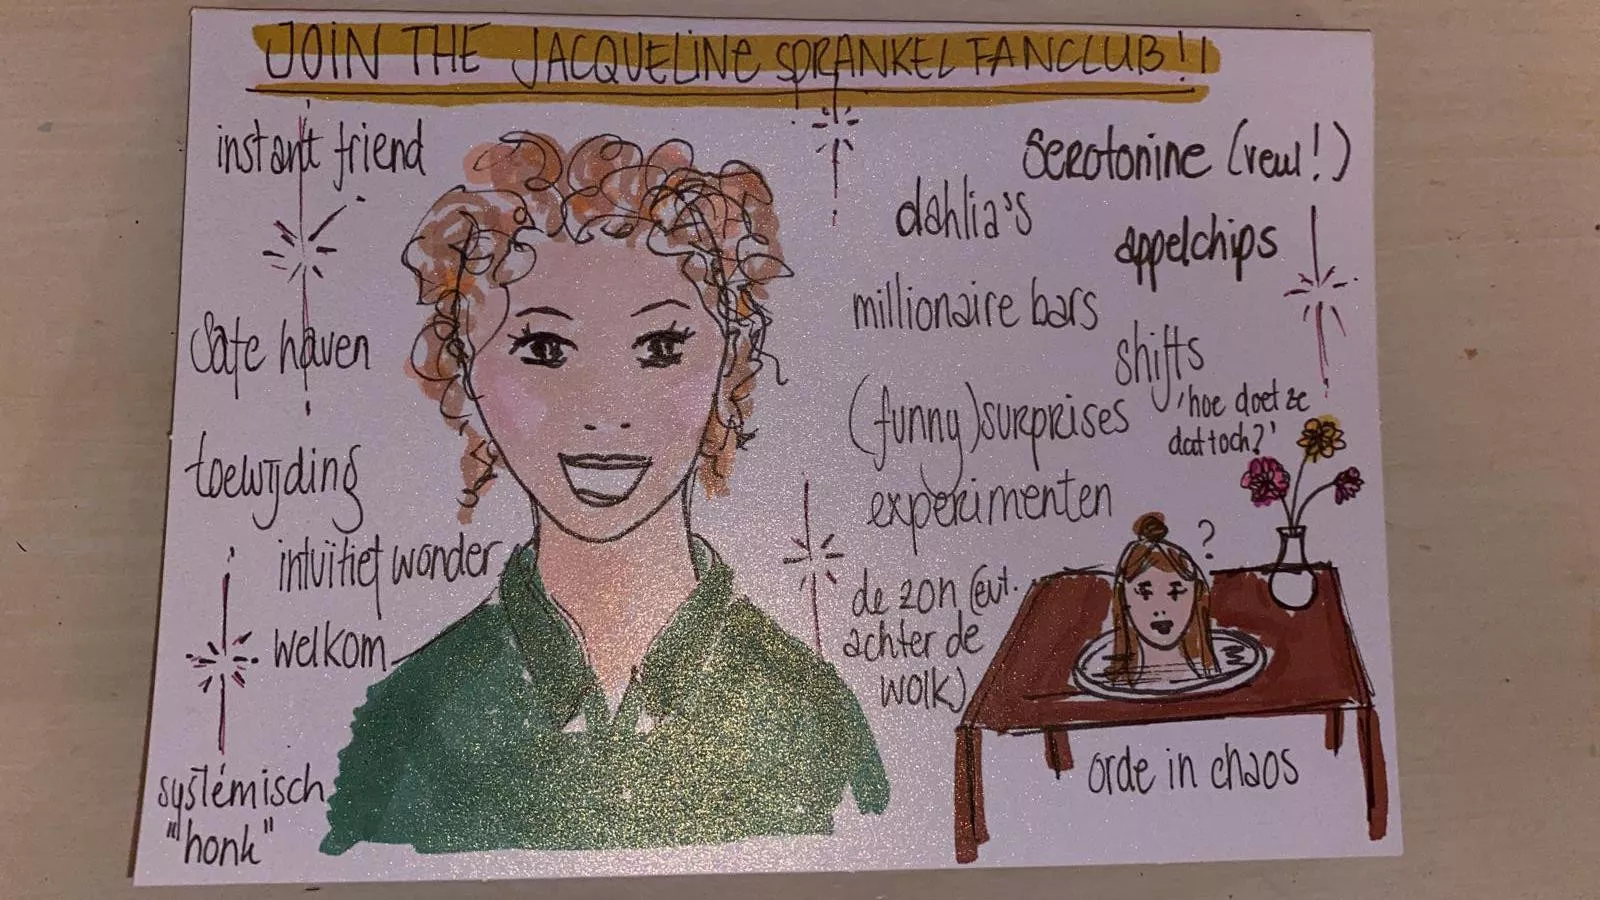 JOIN THE JACQUELINE SPRANKEL FANCLUB!!
instant friend
Safe haven
toewijding
intuïtief wonder
welkom
systemisch
"honk"
Serotonine (veul!)
dahlia's
appelchips
millionaire bars
shifts
(funny) surprises
'hoe doet ze
dat toch?'
experimenten
de zon (evt.
achter de
wolk)
?
orde in chaos